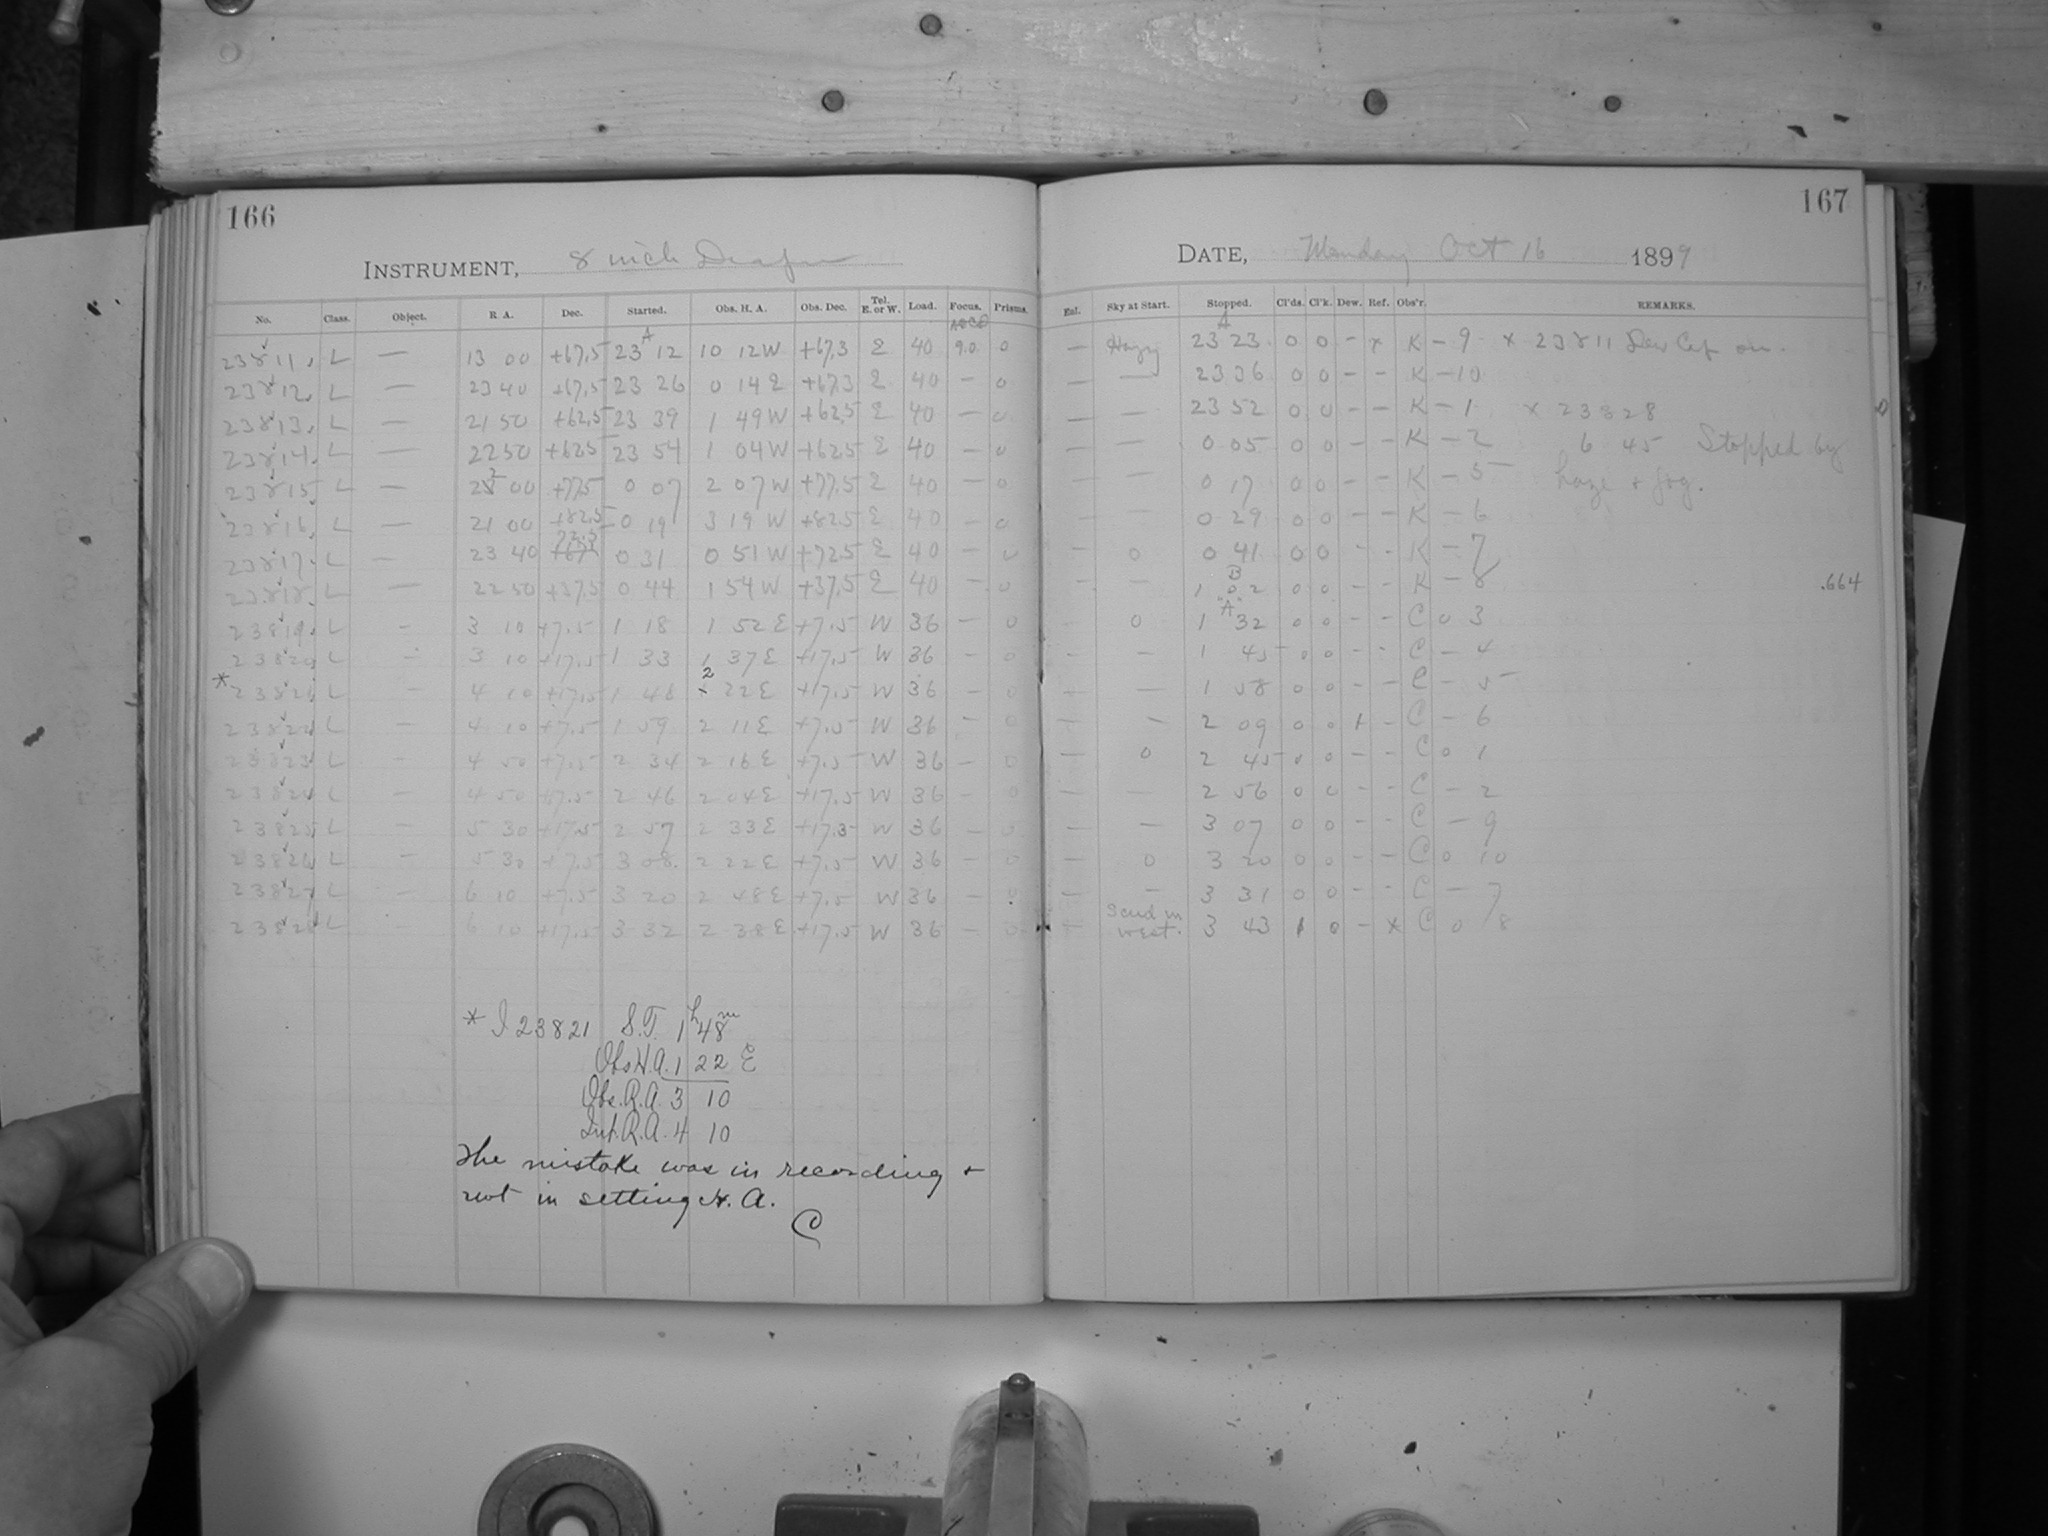 166
INSTRUMENT, 8 inch Draper
No. Class. Object. R. A. Dec. Started. Obs. H. A. Obs. Dec. Tel. E. or W. Load. Focus. Prisms.
23811. L — 13 00 +67.5 23 12 10 12 W +67.3 E 40 9.0 0
23812. L — 23 40 +67.5 23 26 0 14 E +67.3 E 40 — 0
23813. L — 21 50 +62.5 23 39 1 49 W +62.5 E 40 — 0
23814. L — 22 50 +62.5 23 54 1 04 W +62.5 E 40 — 0
23815 L — 22 00 +77.5 0 07 2 07 W +77.5 E 40 — 0
23816. L — 21 00 +82.5 0 19 3 19 W +82.5 E 40 — 0
23817. L — 23 40 72.5 0 31 0 51 W +72.5 E 40 — 0
23818. L — 22 50 +37.5 0 44 1 54 W +37.5 E 40 — 0
23819. L — 3 10 +7.5 1 18 1 52 E +7.5 W 36 — 0
23820 L — 3 10 +17.5 1 33 1 37 E +17.5 W 36 — 0
* 23821 L — 4 10 +17.5 1 48 2 22 E +17.5 W 36 — 0
23822 L — 4 10 +7.5 1 59 2 11 E +7.5 W 36 — 0
23823 L — 4 50 +7.5 2 34 2 16 E +7.5 W 36 — 0
23824 L — 4 50 +17.5 2 46 2 04 E +17.5 W 36 — 0
23825 L — 5 30 +17.5 2 57 2 33 E +17.5 W 36 — 0
23826 L — 5 30 +7.5 3 08. 2 22 E +7.5 W 36 — 0
23827 L — 6 10 +7.5 3 20 2 48 E +7.5 W 36 — 0
23828 L — 6 10 +17.5 3 32 2 38 E +17.5 W 36 — 0
* I 23821 S.T. 1h 48m
Obs H.A. 1 22 E
Obs. R.A. 3 10
Int. R.A. 4 10
The mistake was in recording +
not in setting H. A.
C
167
DATE, Monday Oct 16 1899
Exl. Sky at Start. Stopped. Cl'ds. Cl'k. Dew. Ref. Obs'r. REMARKS.
— Hazy A 23 23 0 0 - x K - 9 x 23811 Dew Cap on.
— — 23 36 0 0 - - K - 10
— — 23 52 0 0 - - K - 1 x 23828
— — 0 05 0 0 - - K - 2 6 45 Stopped by
— — 0 17 0 0 - - K - 5 haze + fog.
— — 0 29 0 0 - - K - 6
- 0 0 41 0 0 - - K - 7
- — B 1 02 0 0 - - K - 8 .664
- 0 "A" 1 32 0 0 - - C 0 3
- — 1 45 0 0 - - C - 4
— — 1 58 0 0 - - C - 5
— — 2 09 0 0 + - C - 6
— 0 2 45 0 0 - - C 0 1
— — 2 56 0 0 - - C - 2
— — 3 07 0 0 - - C - 9
— 0 3 20 0 0 - - C 0 10
— — 3 31 0 0 - - C - 7
— Scud in west. 3 43 1 0 - x C 0 8